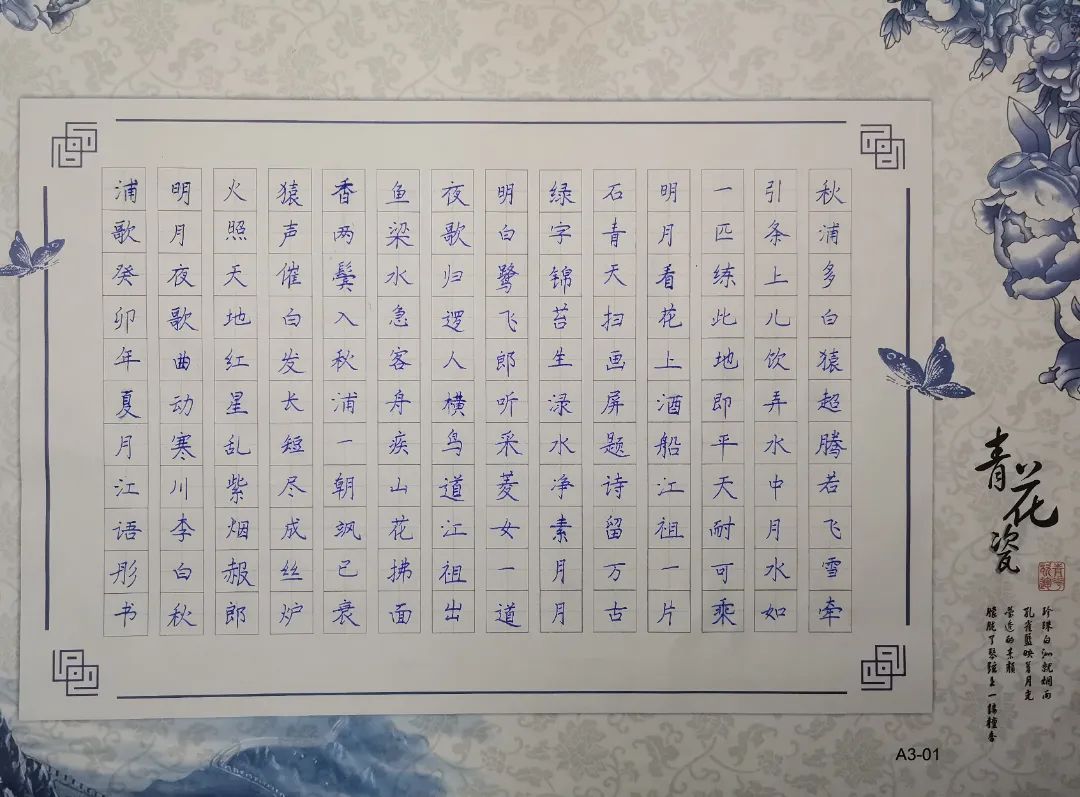 秋浦多白猿超腾若飞雪牵
引条上儿饮弄水中月水如
一匹练此地即平天耐可乘
明月看花上酒船江祖一片
石青天扫画屏题诗留万古
绿字锦苔生渌水净素月月
明白鹭飞郎听采菱女一道
夜歌归逻人横鸟道江祖出
鱼梁水急客舟疾山花拂面
香两鬓入秋浦一朝飒已衰
猿声催白发长短尽成丝炉
火照天地红星乱紫烟赧郎
明月夜歌曲动寒川李白秋
浦歌癸卯年夏月江语彤书
青花瓷
珍珠白泖就烟雨
孔雀蓝映着月光
萦迄的素颜
朦胧了琴弦上一缕檀香
A3-01